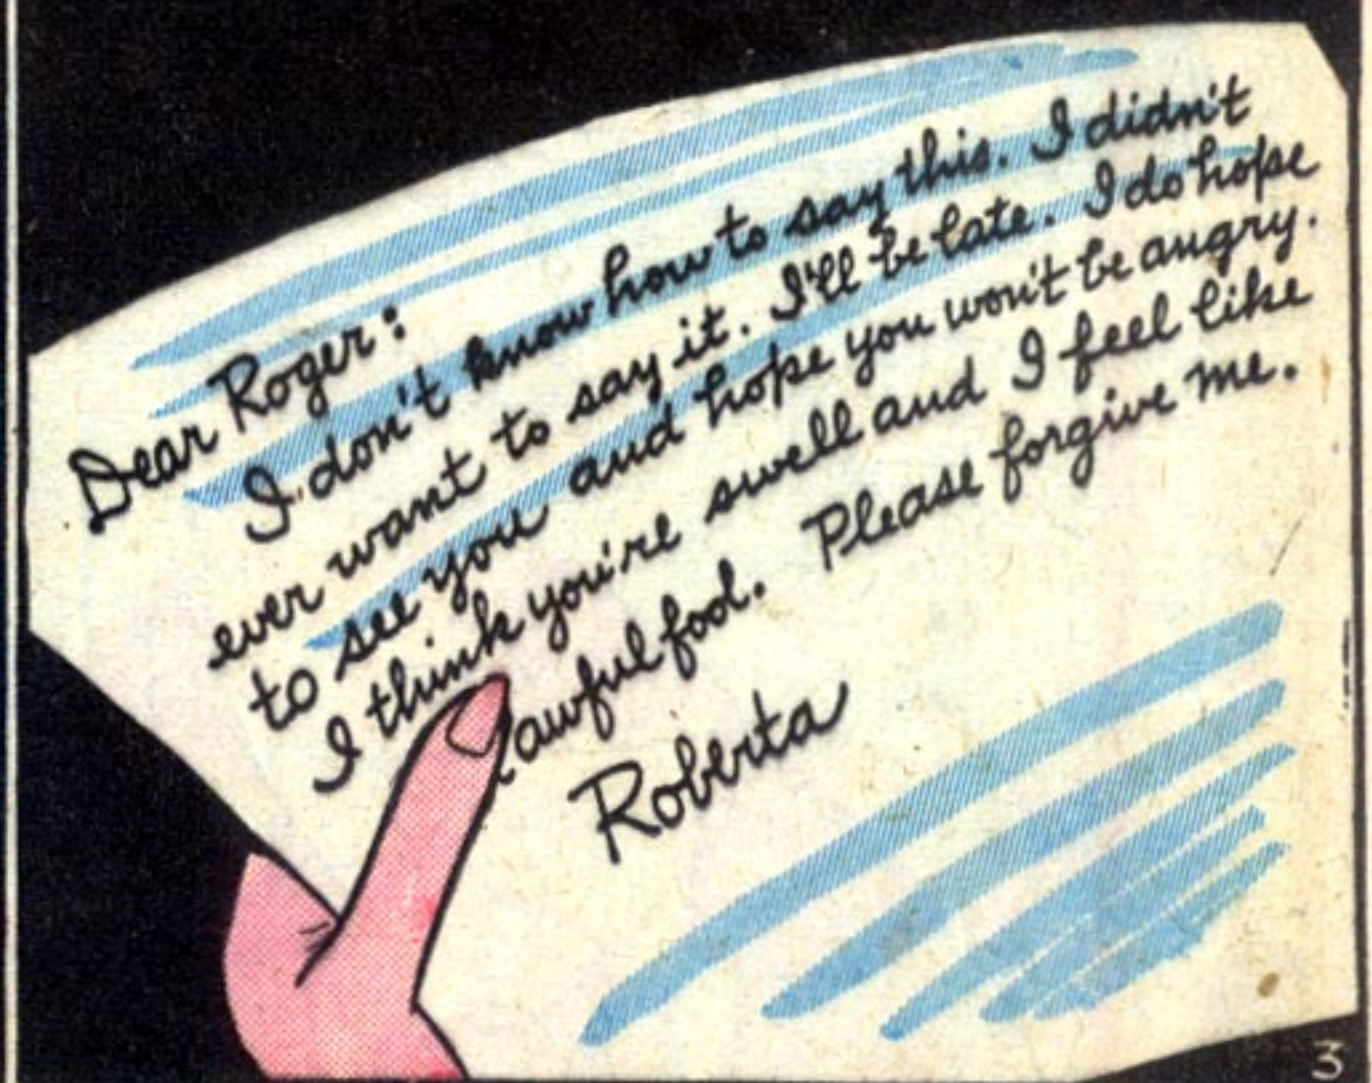 Dear Roger:
I don't know how to say this. I didn't
ever want to say it. I'll be late. I do hope
to see you and hope you won't be angry.
I think you're swell and I feel like
awful fool. Please forgive me.
Roberta
3